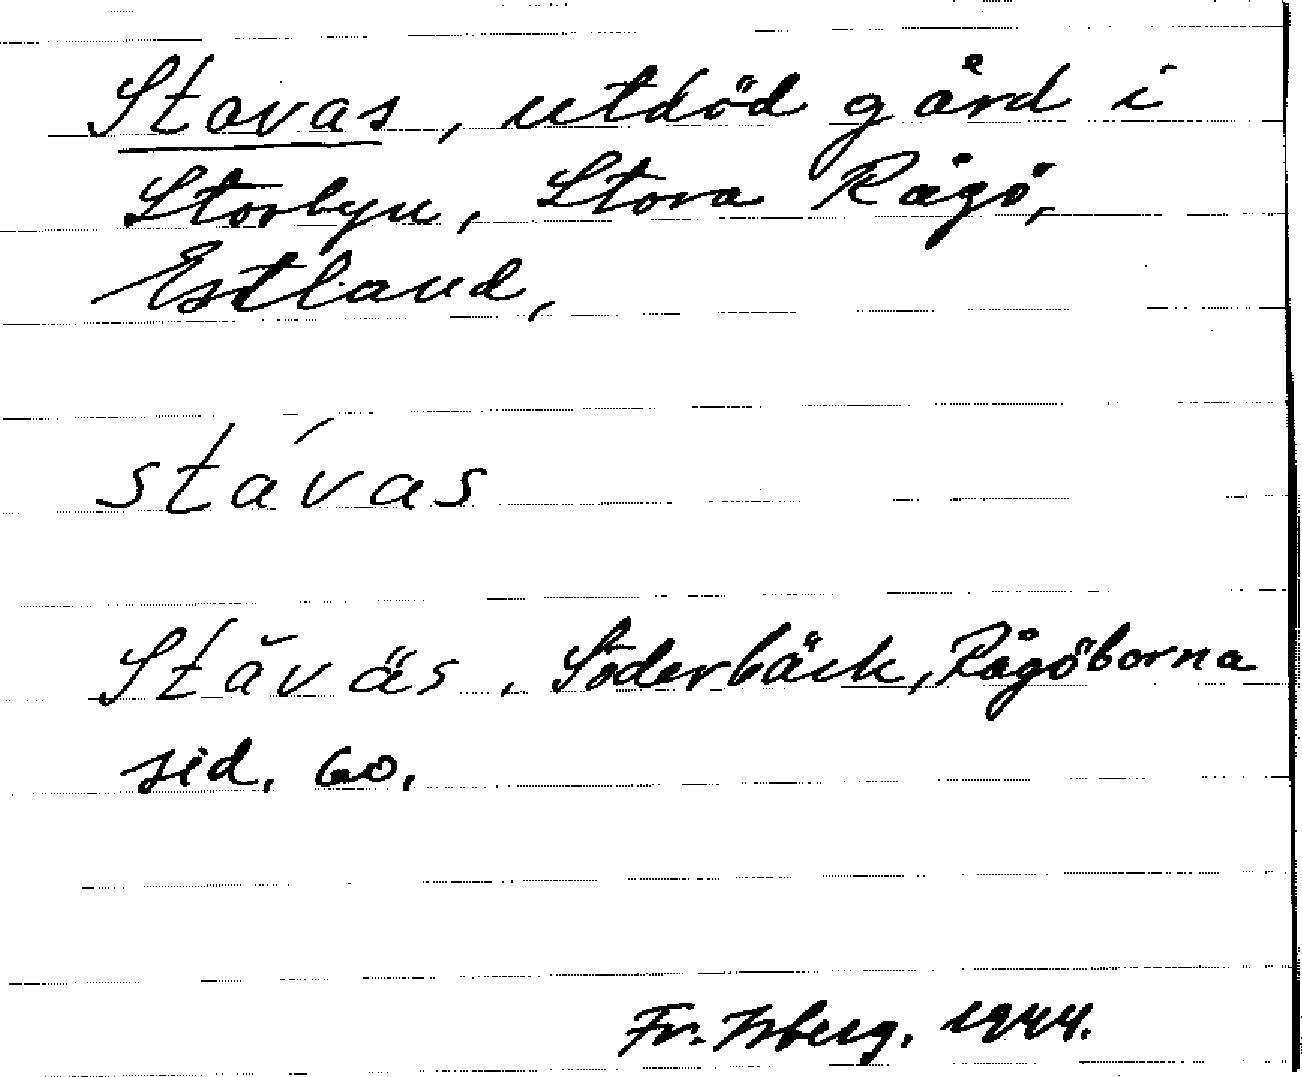 Stavas, utdöd gård i
Storbyn, Stora Rågö,
Estland,
stávas
Stăväs. Söderbäck, Rågöborna
sid. 60.
Fr. Isberg. 1944.